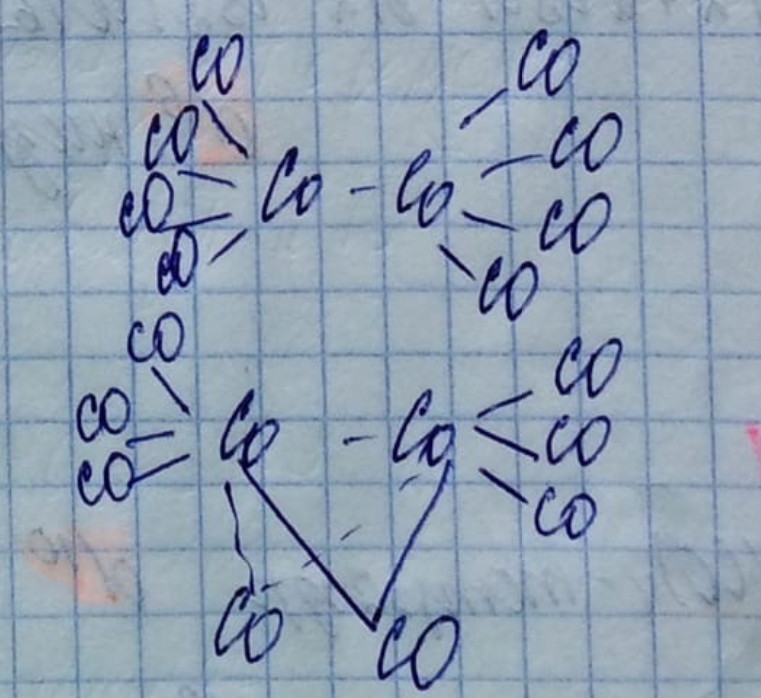 CO CO
CO CO
CO Co - Co CO
CO CO
CO CO
CO Co - Co CO
CO CO
CO CO